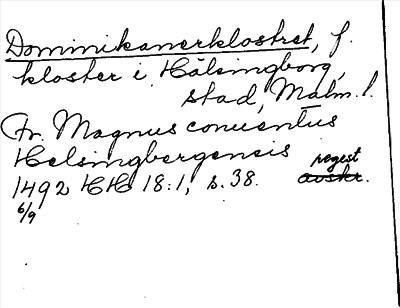 Dominikanerklostret, f.
kloster i Hälsingborg,
stad, Malm. l.
Fr. Magnus conuentus
Helsingbergensis
1492 HH 18:1, s. 38. regest
6/9 avskr.